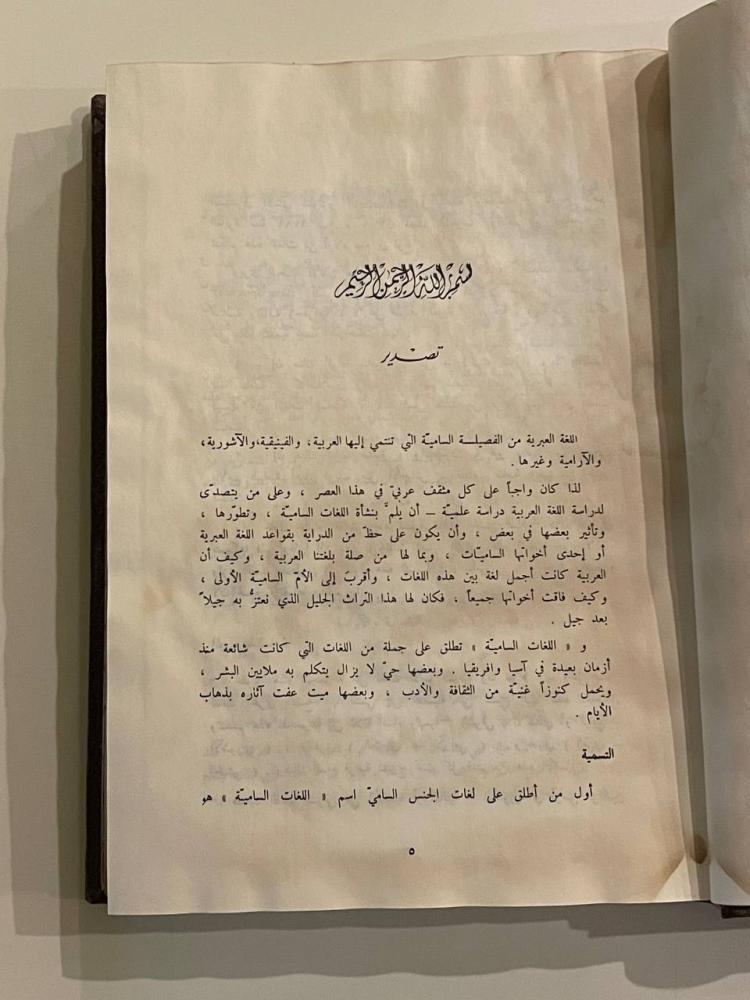 بسم الله الرحمن الرحيم
تصدير
اللغة العبرية من الفصيلة الساميّة التي تنتمي إليها العربية، والفينيقية،والآشورية،
والآرامية وغيرها .
لذا كان واجباً على كل مثقف عربيّ في هذا العصر ، وعلى من يتصدّى
لدراسة اللغة العربية دراسة علميّة – أن يلمَّ بنشأة اللغات الساميّة ، وتطوّرها ،
وتأثير بعضها في بعض ، وأن يكون على حظّ من الدراية بقواعد اللغة العبرية
أو إحدى أخواتها الساميّات ، وبما لها من صلة بلغتنا العربية ، وكيف أن
العربية كانت أجمل لغة بين هذه اللغات ، وأقربَ إلى الأمّ الساميّة الأولى ،
وكيف فاقت أخواتها جميعاً ، فكان لها هذا التراث الجليل الذي نعتزُّ به جيلاً
بعد جيل .
و « اللغات الساميّة » تطلق على جملة من اللغات التي كانت شائعة منذ
أزمان بعيدة في آسيا وافريقيا . وبعضها حيّ لا يزال يتكلم به ملايين البشر ،
ويحمل كنوزاً غنيّة من الثقافة والأدب ، وبعضها ميت عفت آثاره بذهاب
الأيام .
التسمية
أول من أطلق على لغات الجنس الساميّ اسم « اللغات الساميّة » هو
٥